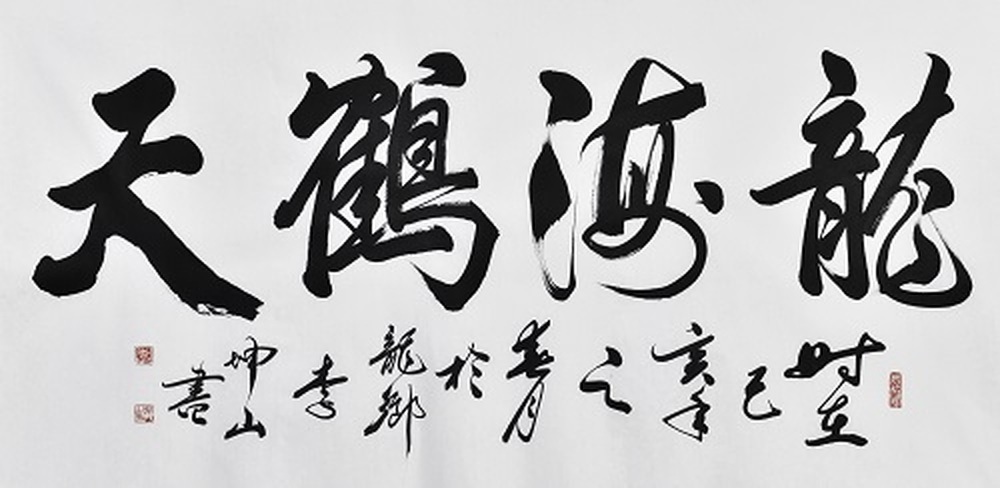 龍海鶴天
時在己亥年之春月於龍鄉李坤山書